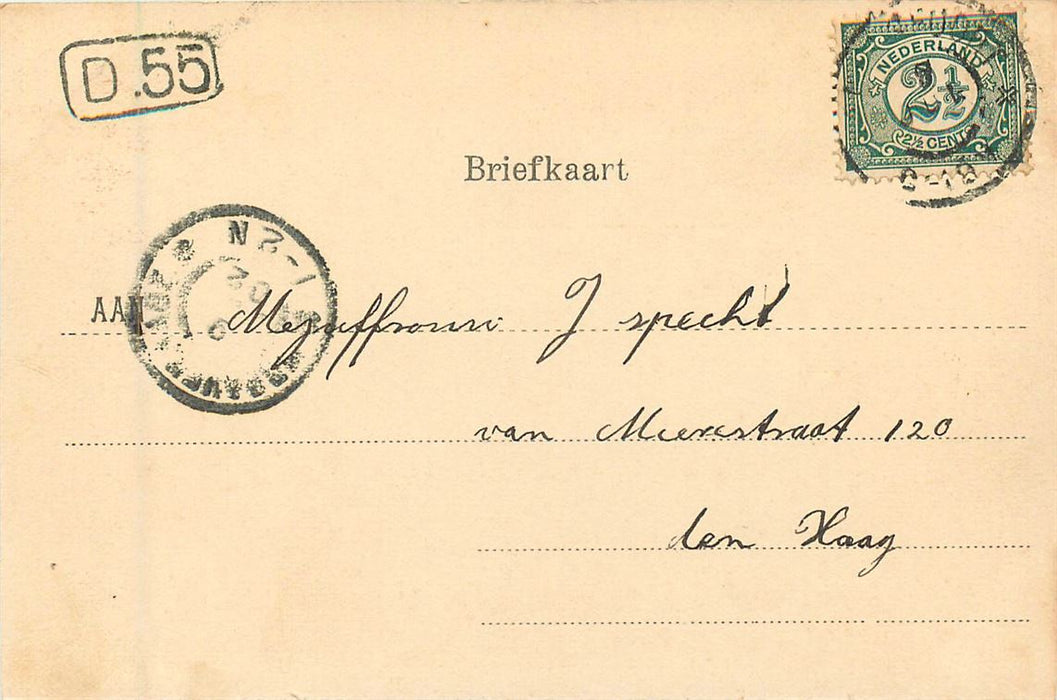 D.55
NEDERLAND
2½
2½ CENT
8-18
Briefkaart
1-2N
AAN Mejuffrouw J specht
van Mierisstraat 120
den Haag